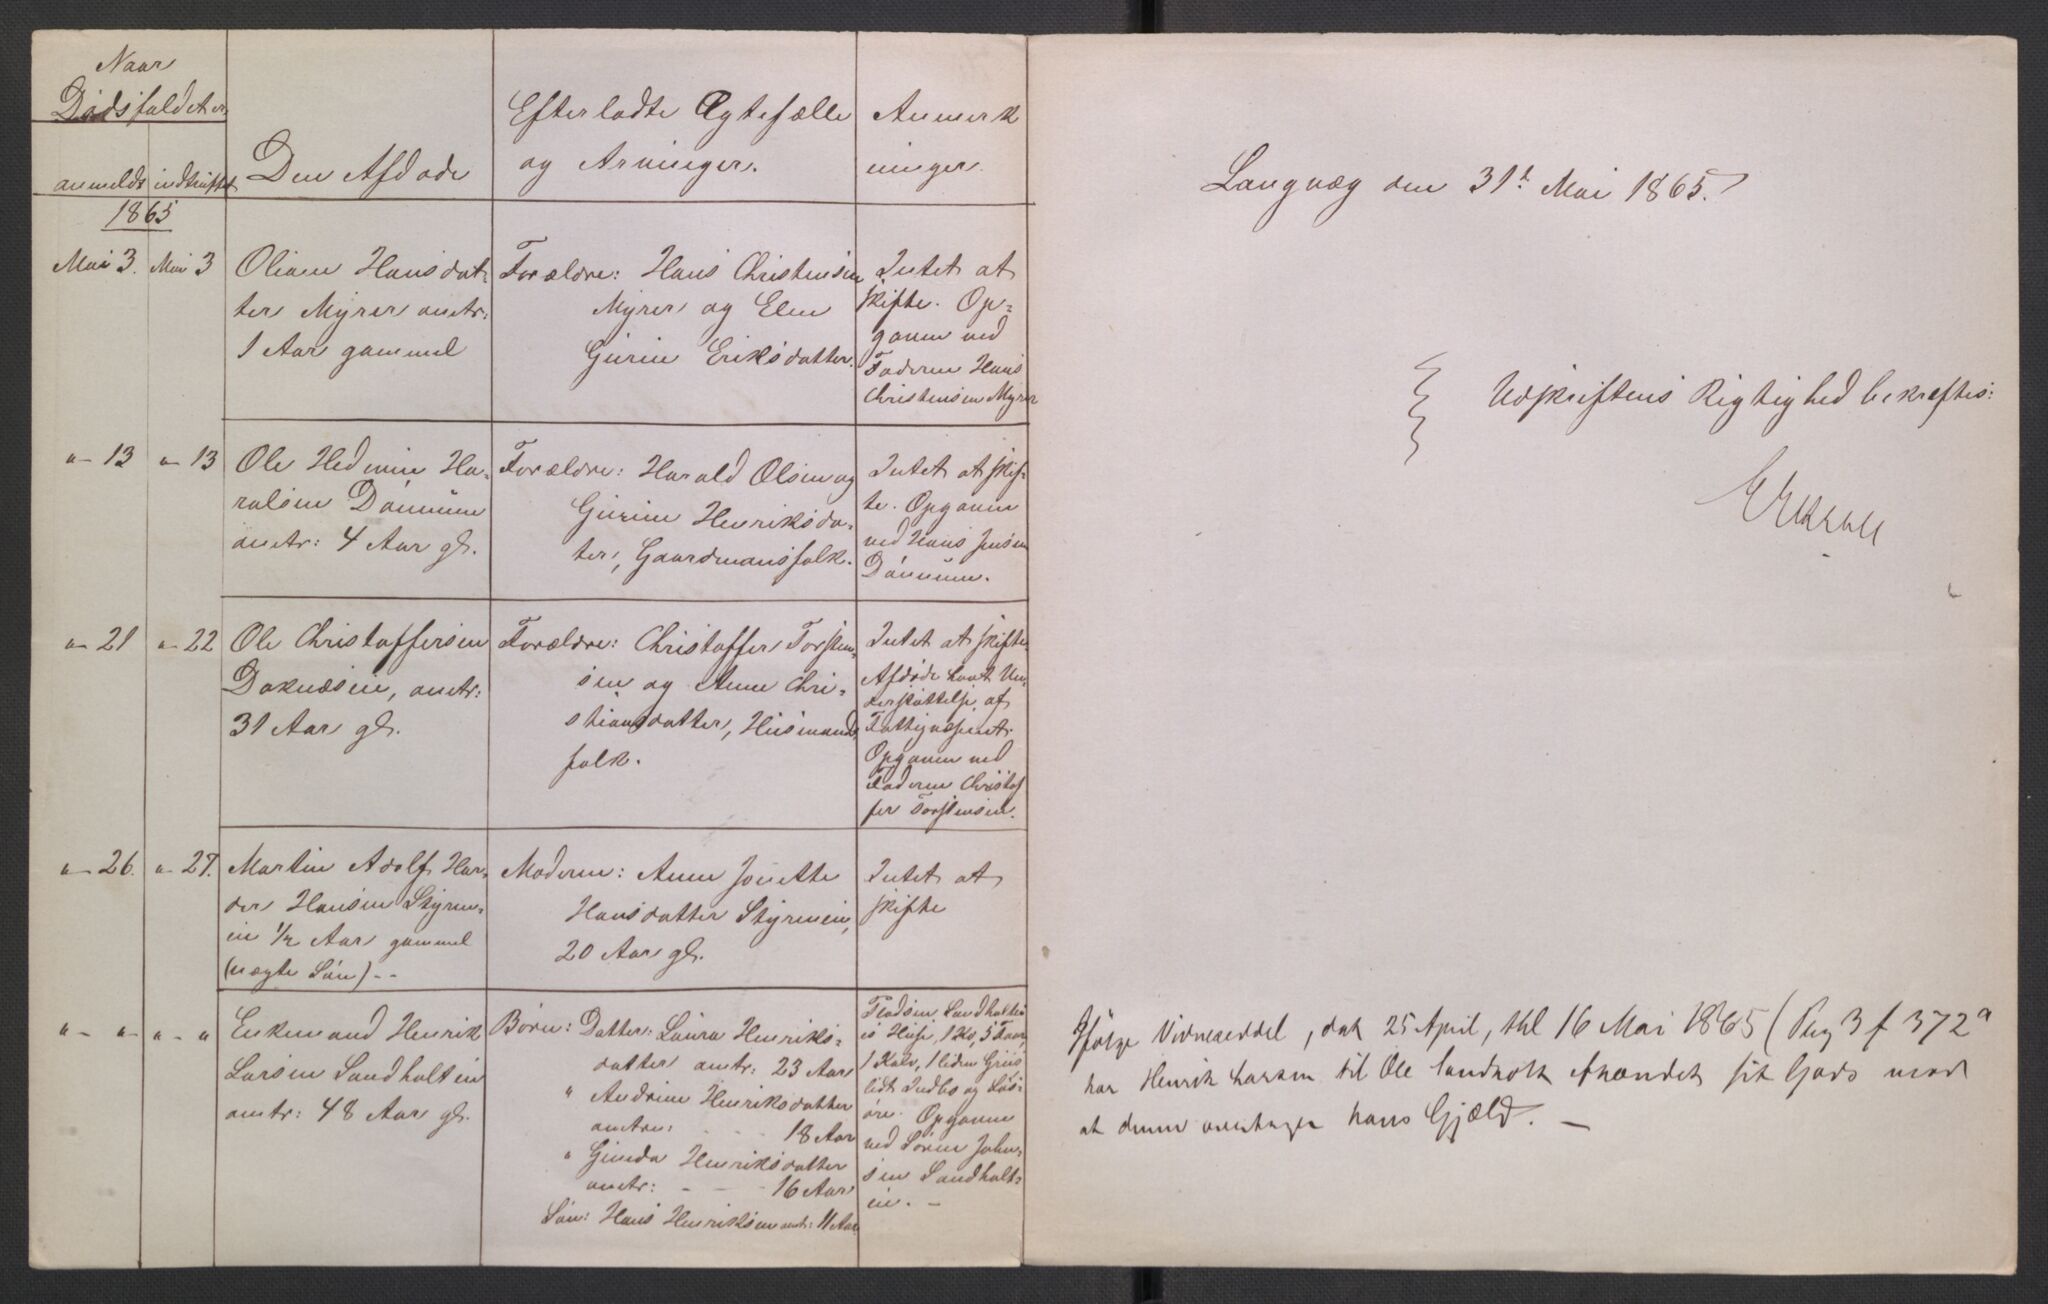 Naar
Dødsfaldet er
anmeldt indskriftet
Den Afdøde
Efterladte Ægtefælle
og Arvinger.
Anmærk
ninger.
1865
Mai 3. Mai 3
Oliane Hansdat-
ter Myrer omtr:
1 Aar gammel
Forældre: Hans Christensen
Myrer og Elen
Gurine Eriksdatter.
Intet at
skifte. Op-
gaven ved
Faderen Hans
Christensen Myrer
"- 13 "- 13
Ole Hedevin Ha-
ralsen Dönnum
omtr: 4 Aar gl.
Forældre: Harald Olsen og
Gurine Henriksda-
ter, Gaardmansfolk.
Intet at skif-
te. Opgaven
ved Hans Jensen
Dönnum.
"- 21 "- 22
Ole Christoffersen
Doknæsin, omtr:
31 Aar gl.
Forældre: Christoffer Torsten-
sen og Anne Chri-
stiansdatter, Husmands
folk.
Intet at skifte.
Afdøde havt Un-
derstøttelse af
Fattigvæsenet.
Opgaven ved
Faderen Christof
fer Torstensen.
"- 26. "- 27.
Martin Adolf Har-
der Hansen Styrm-
in 1/2 Aar gammel
(uægte Sön) --
Moderen: Anne Jonette
Hansdatter Styrmein,
20 Aar gl.
Intet at
skifte
"- " "- "
Enkemand Henrik
Larsen Sandholtin
omtr: 48 Aar gl.
Börn: Datter: Laura Henriks-
datter omtr: 23 Aar
" Andrine Henriksdatter
omtr: - - 18 Aar
" Gunda Henriksdatter
omtr: - - 16 Aar
Sön: Hans Henriksen omtr: 11 Aar
Pladsen Sandholtin
is Huse, 1 Ko, 5 Faar,
1 Kalv, 1 liden Gris
lidt Indbo og Lös-
öre. Opgaven
ved Sören John-
sen Sandholt-
in. -
Langvæg den 31t Mai 1865.
Udskriftens Rigtighed bekræftes:
Ifølge Vidneseddel, dat 25 April, thl 16 Mai 1865 (Reg 3 f 372a
har Henrik Larsen til Ole Sandholt afhændet sit Gods mod
at denne overtager hans Gjæld. -